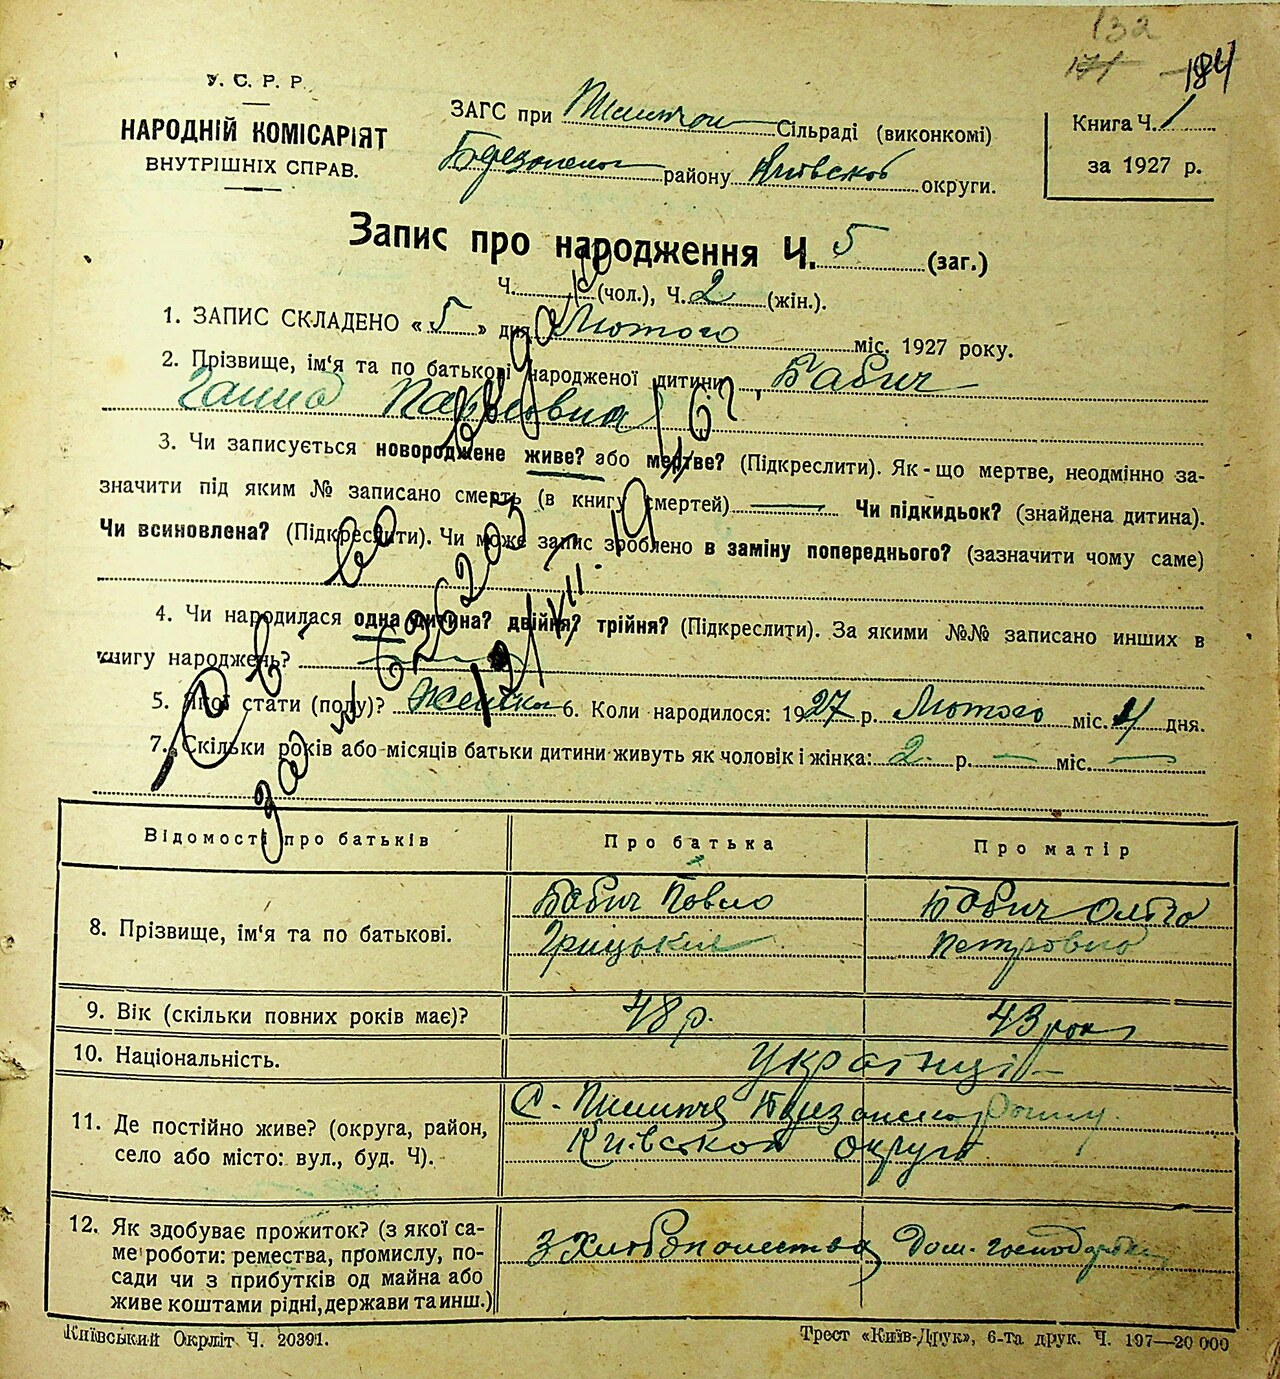 132
171 184
У. С. Р. Р.
НАРОДНІЙ КОМІСАРІЯТ
ВНУТРІШНІХ СПРАВ.
ЗАГС при Сільраді (виконкомі)
району Київської округи.
Книга Ч. 1
за 1927 р.
Запис про народження Ч. 5 (заг.)
Ч. (чол.), Ч. 2 (жін.).
1. ЗАПИС СКЛАДЕНО « 5 » дня Лютого міс. 1927 року.
2. Прізвище, ім'я та по батькові народженої дитини Бабич
Ганна Павловна
3. Чи записується новороджене живе? або мертве? (Підкреслити). Як-що мертве, неодмінно за-
значити під яким № записано смерть (в книгу смертей) — Чи підкидьок? (знайдена дитина).
Чи всиновлена? (Підкреслити). Чи може запис зроблено в заміну попереднього? (зазначити чому саме)
4. Чи народилася одна дитина? двійня? трійня? (Підкреслити). За якими №№ записано инших в
книгу народжень?
5. Якої стати (полу)? Жіночa 6. Коли народилося: 1927 р. Лютого міс. 4 дня.
7. Скільки років або місяців батьки дитини живуть як чоловік і жінка: 2 р. — міс. —
Відомості про батьків Про батька Про матір
8. Прізвище, ім'я та по батькові.
Бабич Павло
Грицьків
Бабич Ольга
Петровна
9. Вік (скільки повних років має)? 48 р. 43 рок
10. Національність. Українці
11. Де постійно живе? (округа, район,
село або місто: вул., буд. Ч).
С.
Київської округи
12. Як здобуває прожиток? (з якої са-
ме роботи: ремества, промислу, по-
сади чи з прибутків од майна або
живе коштами рідні, держави та инш.)
З Хлібопашества Дом. господарка
Київський Окрліт Ч. 20391.
Трест «Київ-Друк», 6-та друк. Ч. 197—20 000